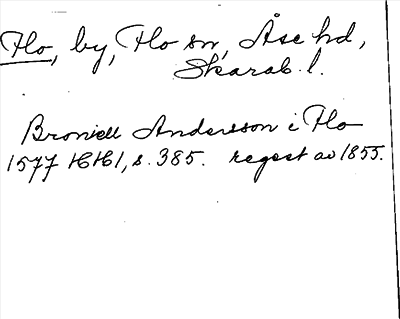 Flo, by, Flo sn, Åse hd,
Skarab. l.
Broniell Andersson i Flo
1577 HH1, s. 385. regest av 1855.